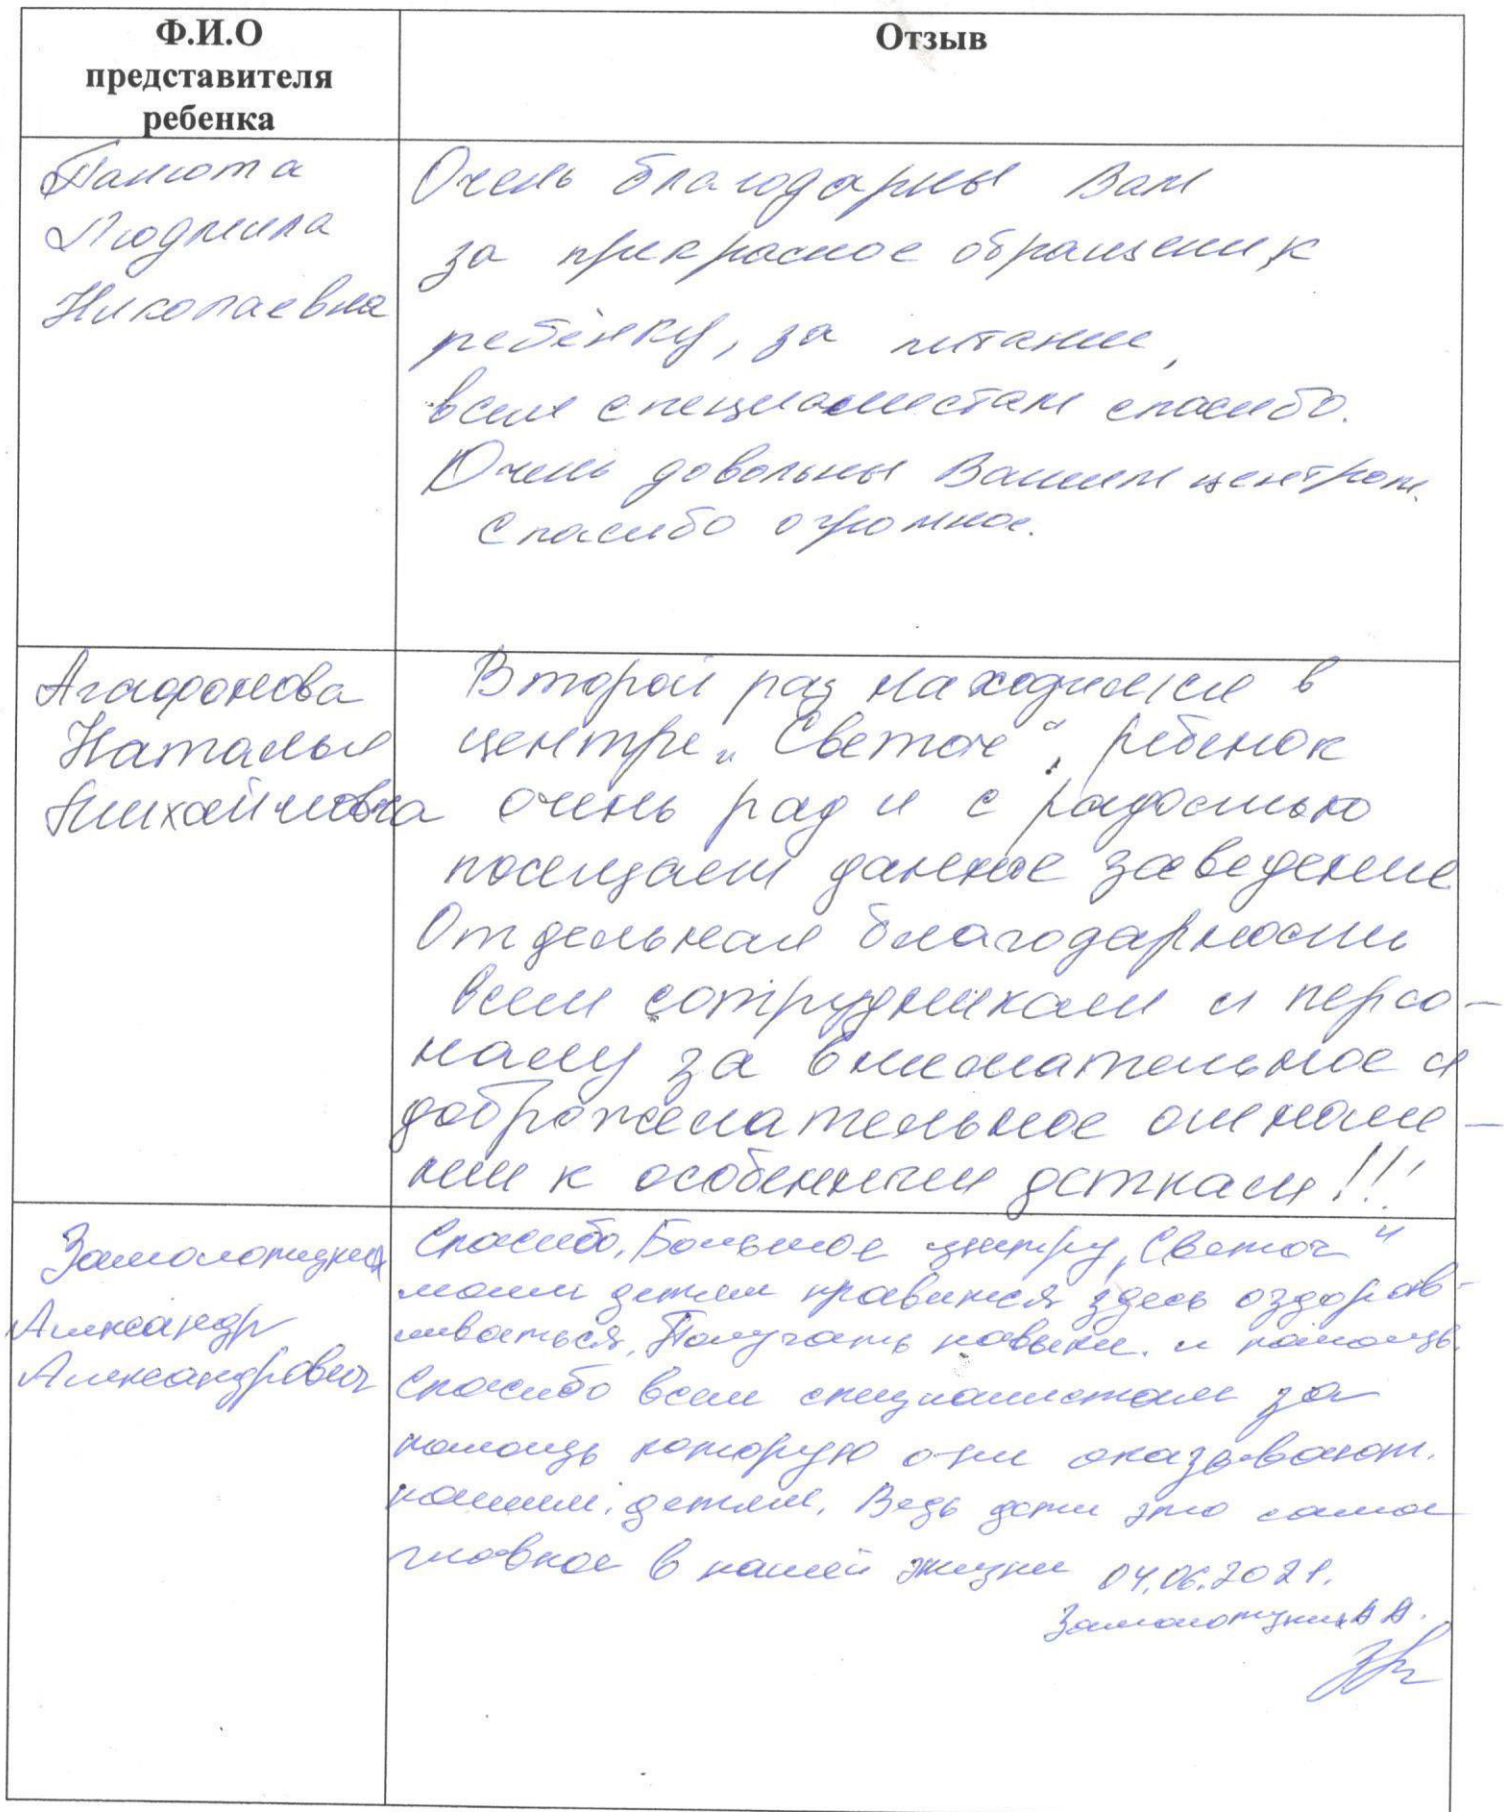 Ф.И.О
представителя
ребенка
Отзыв
Панюта
Людмила
Николаевна
Очень благодарны Вам
за прекрасное обращении к
ребёнку, за питание,
всем специалистам спасибо.
Очень довольны Вашим центром.
Спасибо огромное.
Агафонова
Наталья
Михайловна
Второй раз находимся в
центре „Светоч“, ребенок
очень рад и с радостью
посещаем данное заведение
Отдельная благодарность
всем сотрудникам и персо-
налу за внимательное и
доброжелательное
нии к особенным деткам!!!
Александр
Александрович
Спасибо, Большое центру „Светоч“
моим детям нравится здесь оздорав-
ливаться, Получать навыки. и помощь.
Спасибо всем специалистам за
помощь которую они оказывают.
нашим. детям. Ведь дети это самое
главное в нашей жизни 04.06.2021.
А А.